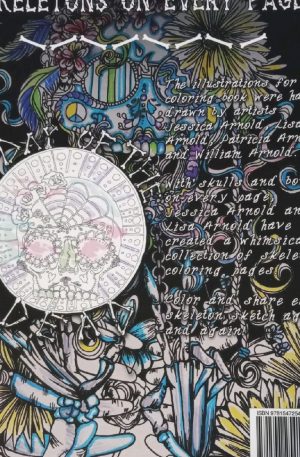 KELETONS ON EVERY PAGE
The illustrations for
coloring book were ha
drawn by artists
Jessica Arnold, Lisa
Arnold, Patricia Arn
and William Arnold.
With skulls and bo
on every page
Jessica Arnold an
Lisa Arnold have
created a whimsica
collection of skele
coloring pages.
Color and share e
skeleton sketch ag
and again